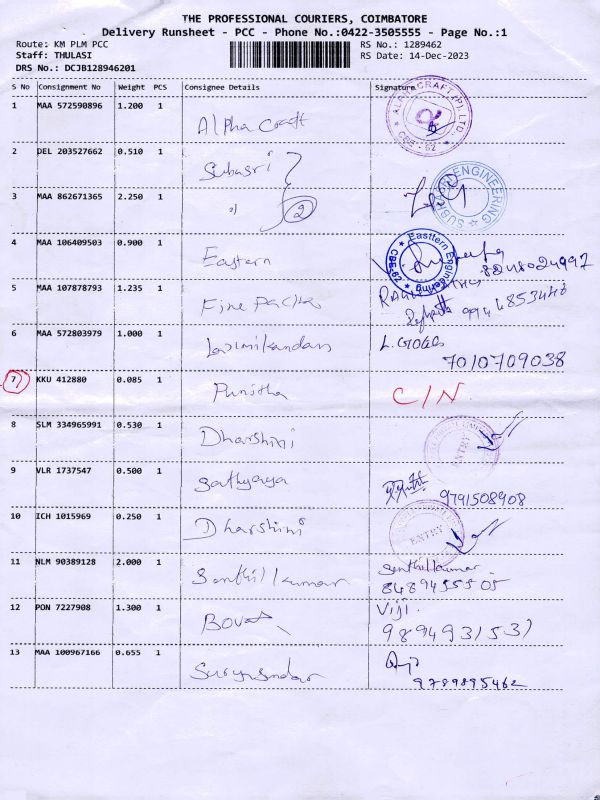 THE PROFESSIONAL COURIERS, COIMBATORE
Delivery Runsheet - PCC - Phone No.:0422-3505555 - Page No.:1
Route: KM PLM PCC
Staff: THULASI
DRS No.: DCJB128946201
RS No.: 1289462
RS Date: 14-Dec-2023
S No Consignment No Weight PCS Consignee Details Signature
1 MAA 572590896 1.200 1 Alpha Craft
ALPHA CRAFT (P) LTD. CBE - 62
2 DEL 203527662 0.510 1 Subasri
3 MAA 862671365 2.250 1 2
ENGINEERING
4 MAA 106409503 0.900 1 Eastern
Easttern Engineering 8248024997
5 MAA 107878793 1.235 1 Fine Packs
9944853448
6 MAA 572803979 1.000 1 Laxmikandan L. Gogul
7010709038
7 KKU 412880 0.085 1 Punitha C/N
8 SLM 334965991 0.530 1 Dharshini
ENTRY
9 VLR 1737547 0.500 1 Sathyaya
9791508908
10 ICH 1015969 0.250 1 Dharshini
ENTRY
11 NLM 90389128 2.000 1 Senthilkumar Senthilkumar
8489455505
12 PON 7227908 1.300 1 Viji
9894931531
13 MAA 100967166 0.655 1
9789895462